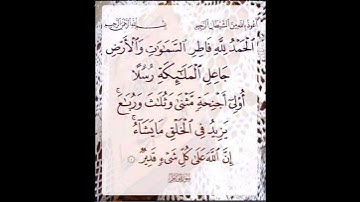 أعوذ بالله من الشيطان الرجيم
بسم الله الرحمن الرحيم
ٱلْحَمْدُ لِلَّهِ فَاطِرِ ٱلسَّمَٰوَٰتِ وَٱلْأَرْضِ
جَاعِلِ ٱلْمَلَٰٓئِكَةِ رُسُلًا
أُو۟لِىٓ أَجْنِحَةٍ مَّثْنَىٰ وَثُلَٰثَ وَرُبَٰعَ ۚ
يَزِيدُ فِى ٱلْخَلْقِ مَا يَشَآءُ ۚ
إِنَّ ٱللَّهَ عَلَىٰ كُلِّ شَىْءٍ قَدِيرٌ